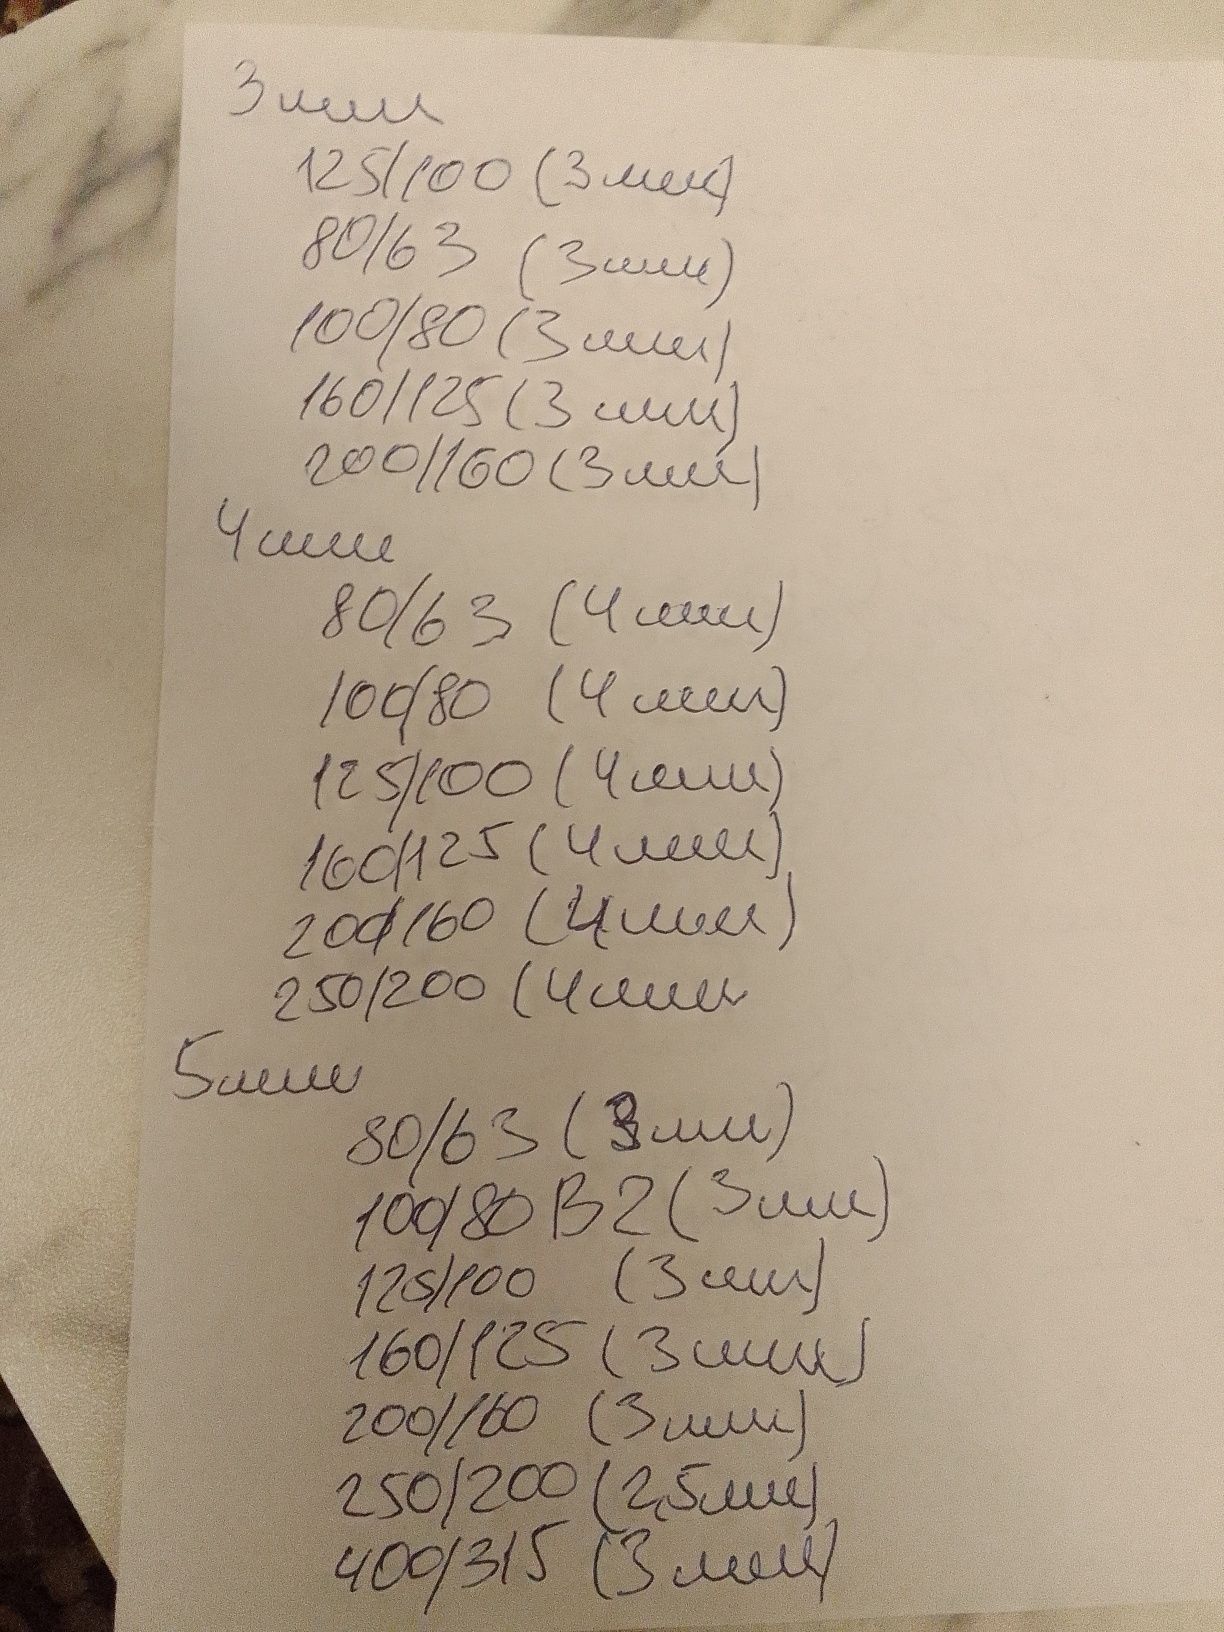 3 мм
125/100 (3 мм)
80/63 (3 мм)
100/80 (3 мм)
160/125 (3 мм)
200/160 (3 мм)
4 мм
80/63 (4 мм)
100/80 (4 мм)
125/100 (4 мм)
160/125 (4 мм)
200/160 (4 мм)
250/200 (4 мм
5 мм
80/63 (3 мм)
100/80 В2 (3 мм)
125/100 (3 мм)
160/125 (3 мм)
200/160 (3 мм)
250/200 (2,5 мм)
400/315 (3 мм)